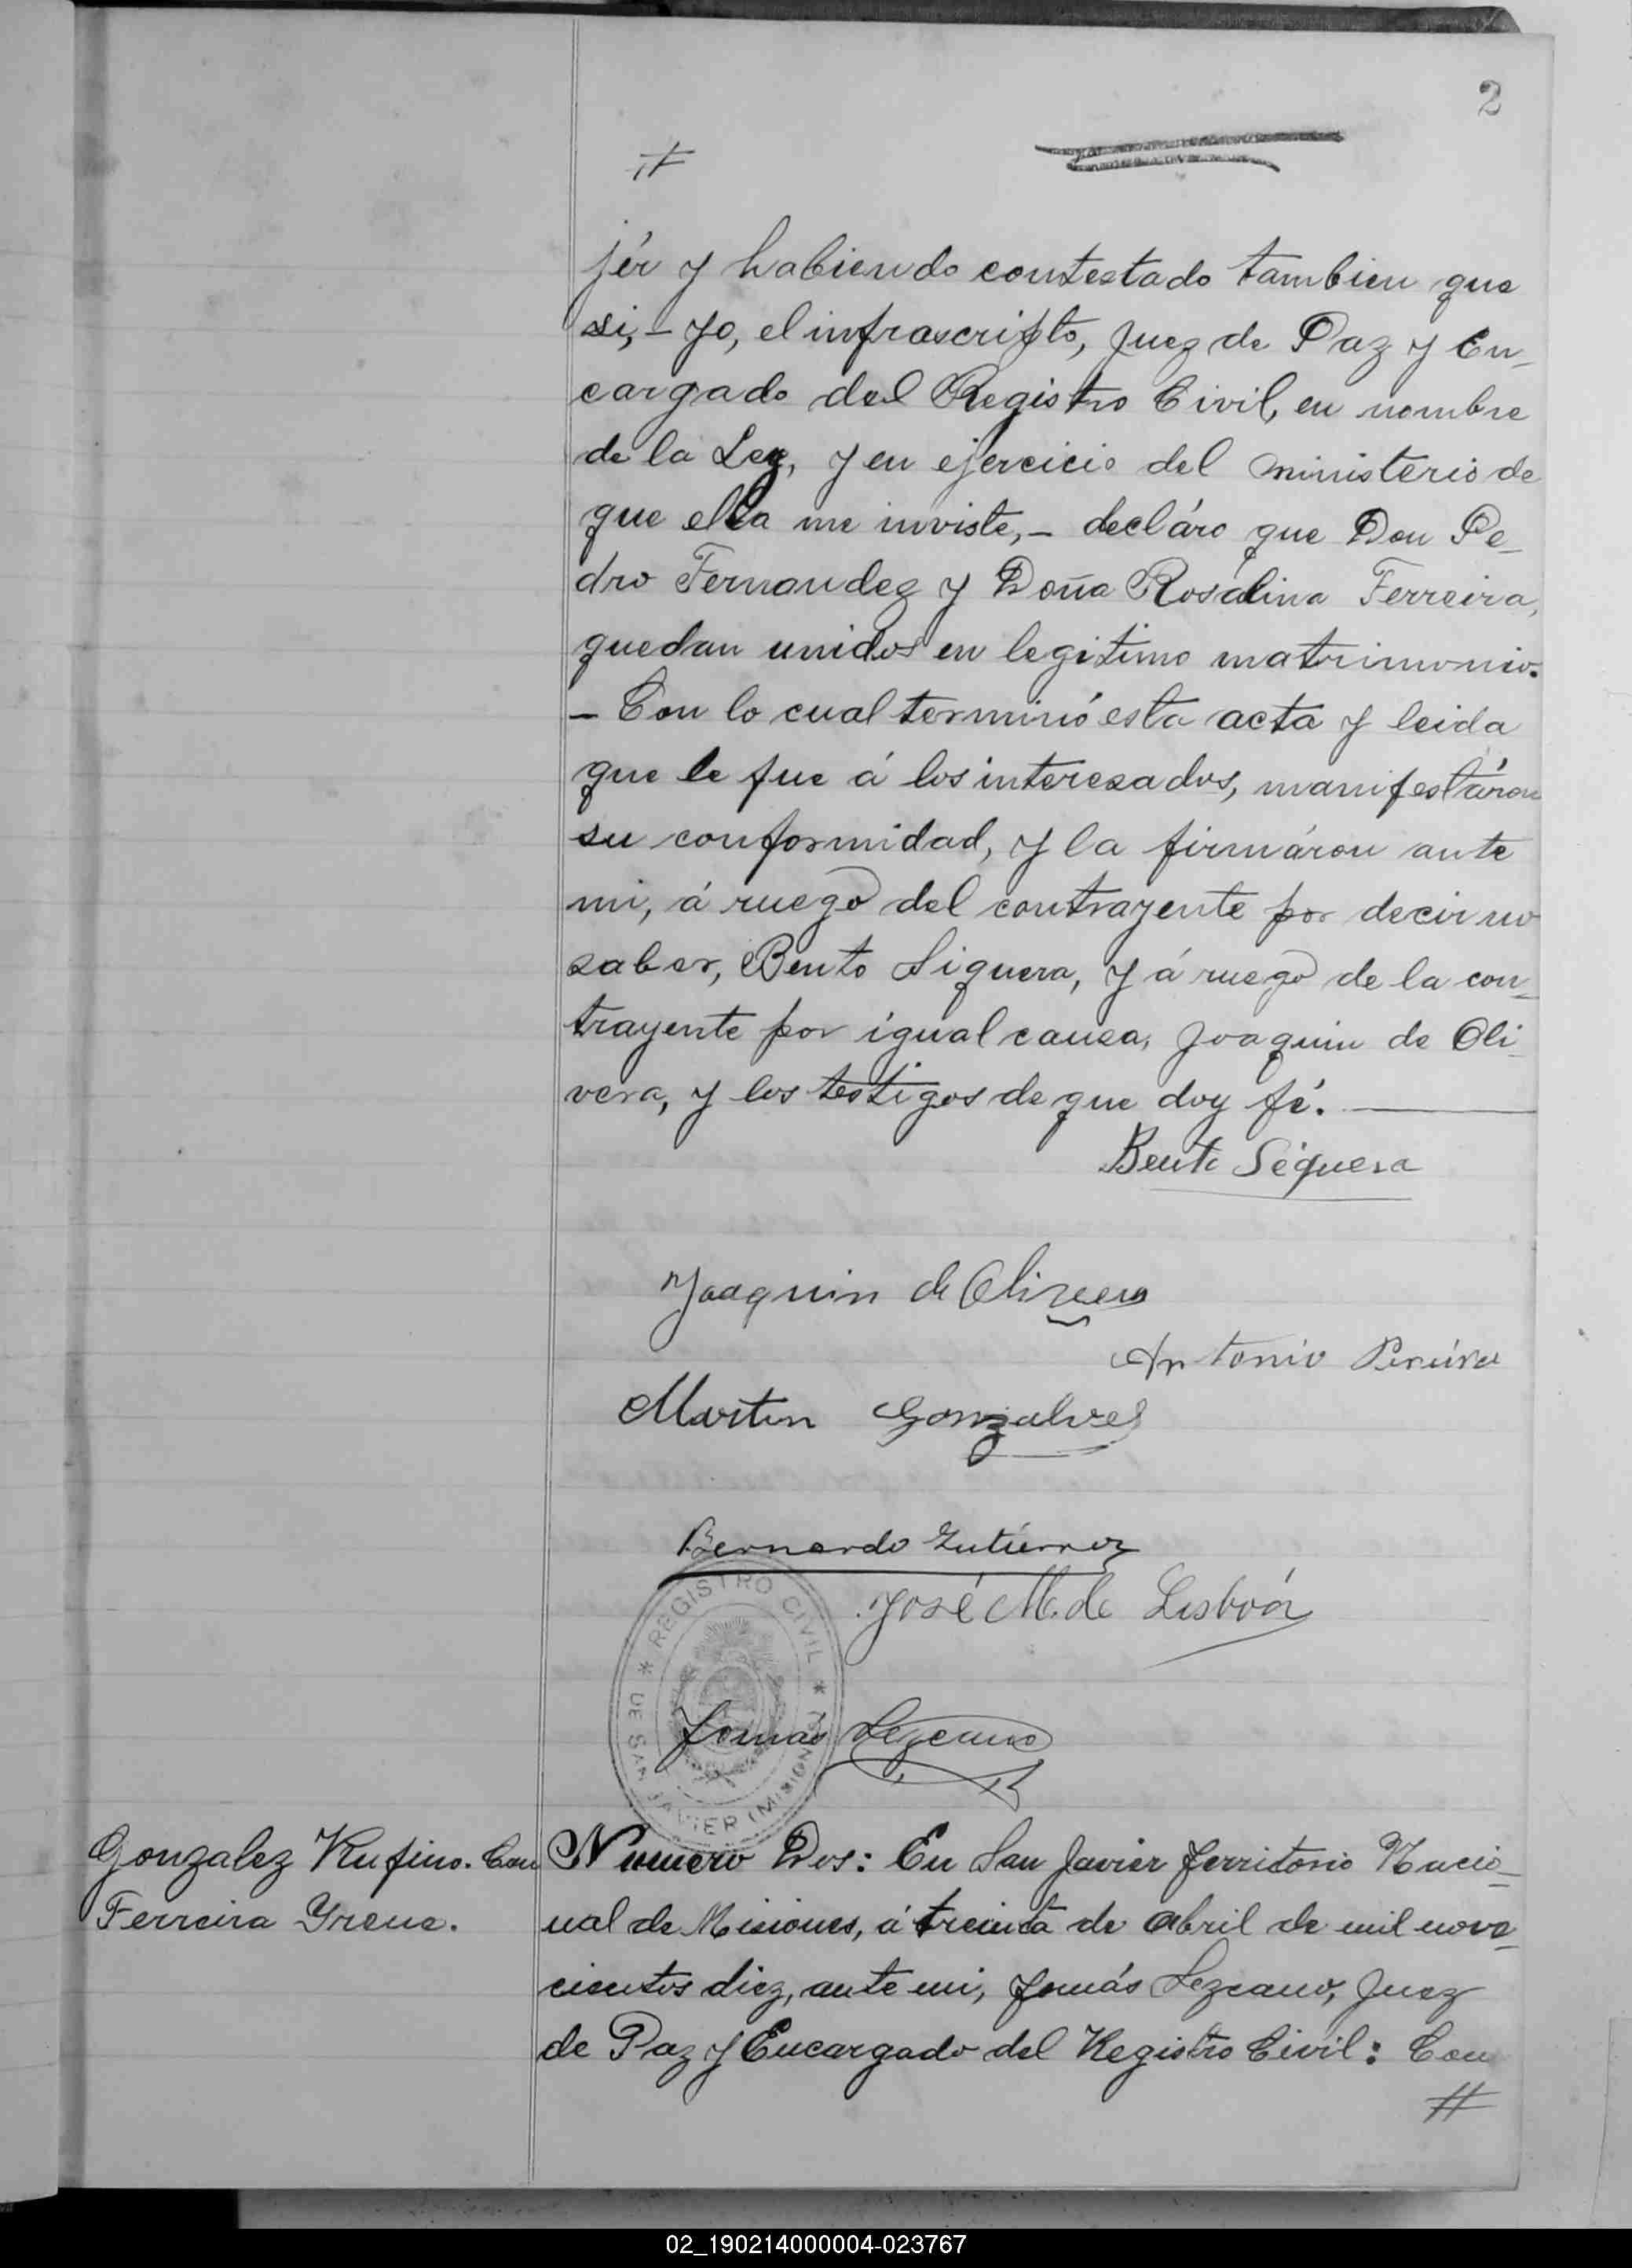 2
#
jér y habiendo contestado tambien que
si,- yo, el infrascripto, Juez de Paz y En-
cargado del Registro Civil, en nombre
de la Ley, y en ejercicio del ministerio de
que ella me inviste,- decláro que Don Pe-
dro Fernandez y Doña Rosalina Ferreira,
quedan unidos en legitimo matrimonio.
- Con lo cual terminó esta acta y leida
que le fue á los interesados, manifestáron
su conformidad, y la firmáron ante
mi, á ruego del contrayente por decir no
saber, Bento Siquera, y á ruego de la con-
trayente por igual causa, Joaquin de Oli-
vera, y los testigos de que doy fé.
Bento Siquera
Joaquin de Olivera
Antonio Pereira
Martin Gonzalves
Bernardo Gutierrez
José M. de Lisboá
* REGISTRO CIVIL *
DE SAN JAVIER (MISIONES)
Tomás Lezcano
Gonzalez Rufino. Con
Ferreira Yrene.
Numero Dos: En San Javier Territorio Nacio-
nal de Misiones, á treinta de Abril de mil nove-
cientos diez, ante mi, Tomás Lezcano, Juez
de Paz y Encargado del Registro Civil: Com
#
02_190214000004-023767